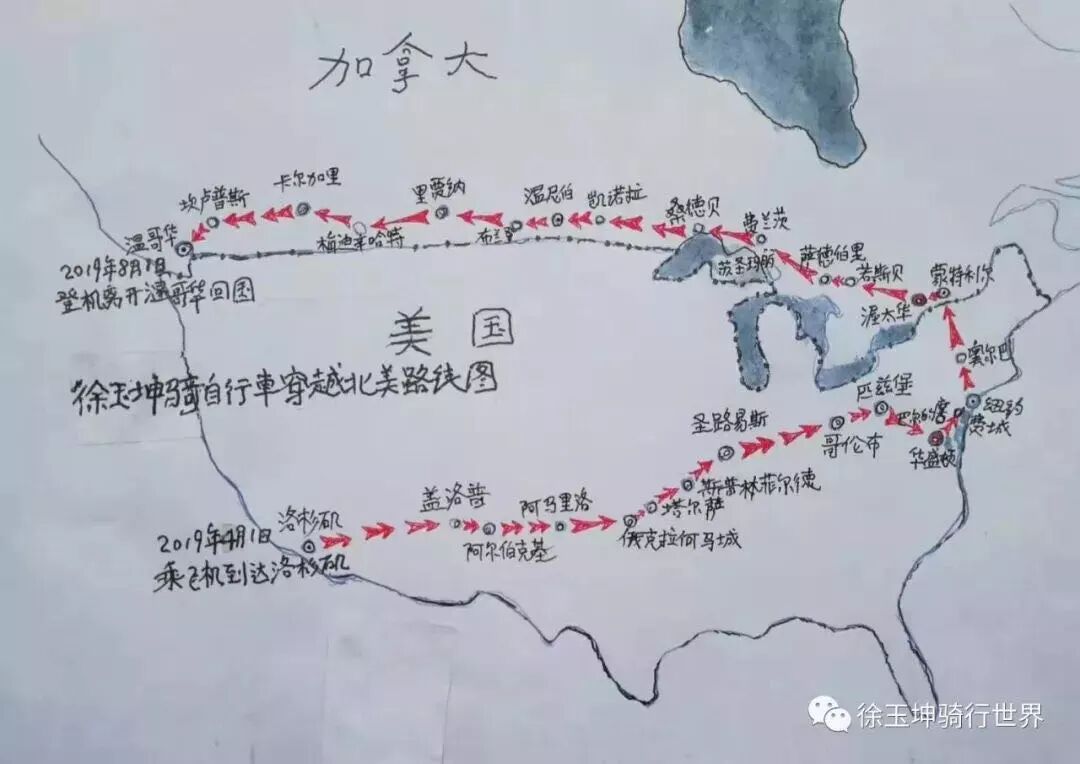 加拿大
坎卢普斯
卡尔加里
里贾纳
温尼伯
凯诺拉
桑德贝
费兰茨
温哥华
梅迪辛哈特
苏圣玛丽
萨德伯里
若斯贝
蒙特利尔
2019年8月1日
登机离开温哥华回国
渥太华
美国
徐玉坤骑自行車穿越北美路线图
奥尔巴
匹兹堡
纽约
费城
圣路易斯
哥伦布
华盛顿
斯普林菲尔德
盖洛普
阿马里洛
塔尔萨
洛杉矶
阿尔伯克基
俄克拉何马城
2019年4月1日
乘飞机到达洛杉矶
徐玉坤骑行世界